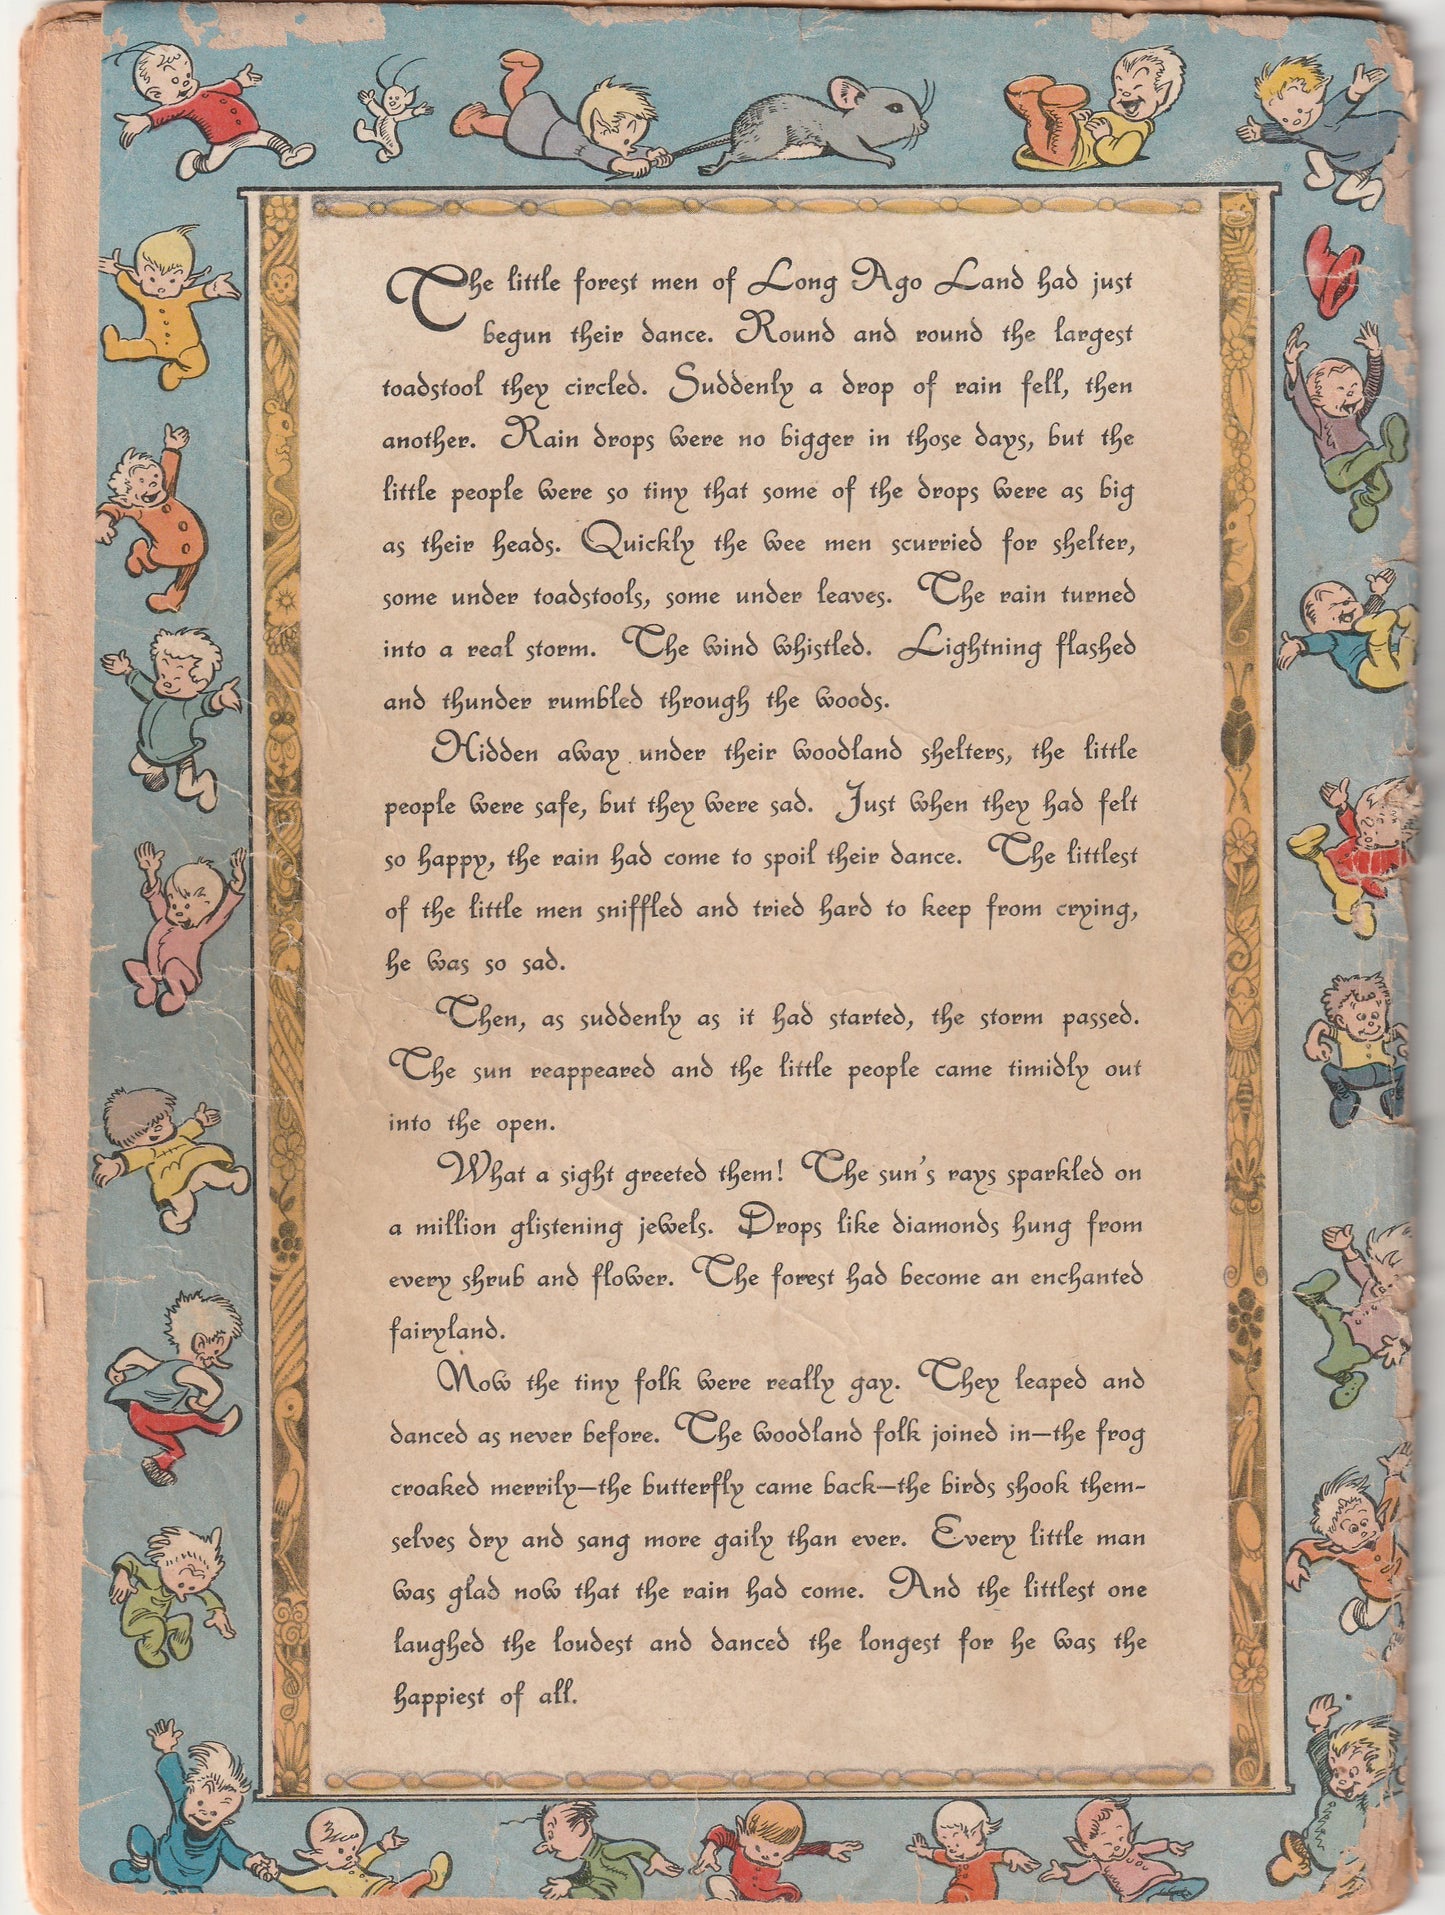 The little forest men of Long Ago Land had just
begun their dance. Round and round the largest
toadstool they circled. Suddenly a drop of rain fell, then
another. Rain drops were no bigger in those days, but the
little people were so tiny that some of the drops were as big
as their heads. Quickly the wee men scurried for shelter,
some under toadstools, some under leaves. The rain turned
into a real storm. The wind whistled. Lightning flashed
and thunder rumbled through the woods.
Hidden away under their woodland shelters, the little
people were safe, but they were sad. Just when they had felt
so happy, the rain had come to spoil their dance. The littlest
of the little men sniffled and tried hard to keep from crying,
he was so sad.
Then, as suddenly as it had started, the storm passed.
The sun reappeared and the little people came timidly out
into the open.
What a sight greeted them! The sun's rays sparkled on
a million glistening jewels. Drops like diamonds hung from
every shrub and flower. The forest had become an enchanted
fairyland.
Now the tiny folk were really gay. They leaped and
danced as never before. The woodland folk joined in—the frog
croaked merrily—the butterfly came back—the birds shook them-
selves dry and sang more gaily than ever. Every little man
was glad now that the rain had come. And the littlest one
laughed the loudest and danced the longest for he was the
happiest of all.